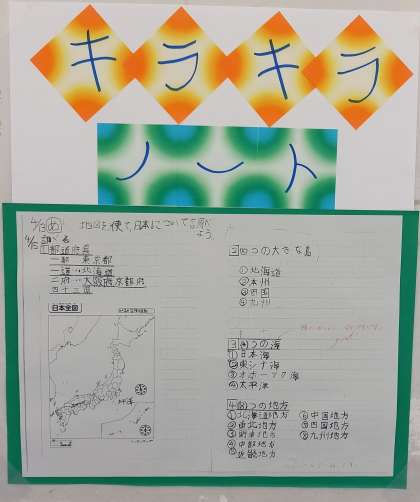 キラキラ
ノート
地図を使って日本について調べ
よう
1 都道府県
一都 東京都
一道 北海道
二府 大阪府京都府
四十三県
日本全図
2 四つの大きな島
①北海道
②本州
③四国
④九州
3 四つの海
①日本海
②東シナ海
③オホーツク海
④太平洋
4 8つの地方
①北海道地方
②東北地方
③関東地方
④中部地方
⑤近畿地方
⑥中国地方
⑦四国地方
⑧九州地方